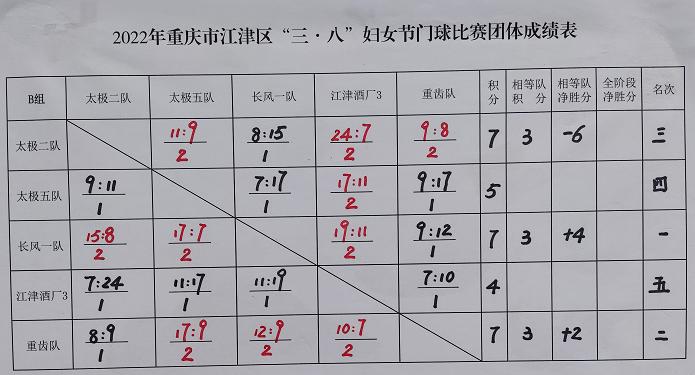 2022年重庆市江津区“三·八”妇女节门球比赛团体成绩表
B组 太极二队 太极五队 长风一队 江津酒厂3 重齿队 积分 相等队积分 相等队净胜分 全阶段净胜分 名次
太极二队 11:9 8:15 24:7 9:8 7 3 -6 三
2 1 2 2
太极五队 9:11 7:17 17:11 9:17 5 四
1 1 2 1
长风一队 15:8 17:7 19:11 9:12 7 3 +4 一
2 2 2 1
江津酒厂3 7:24 11:17 11:19 7:10 4 五
1 1 1 1
重齿队 8:9 17:9 12:9 10:7 7 3 +2 二
1 2 2 2